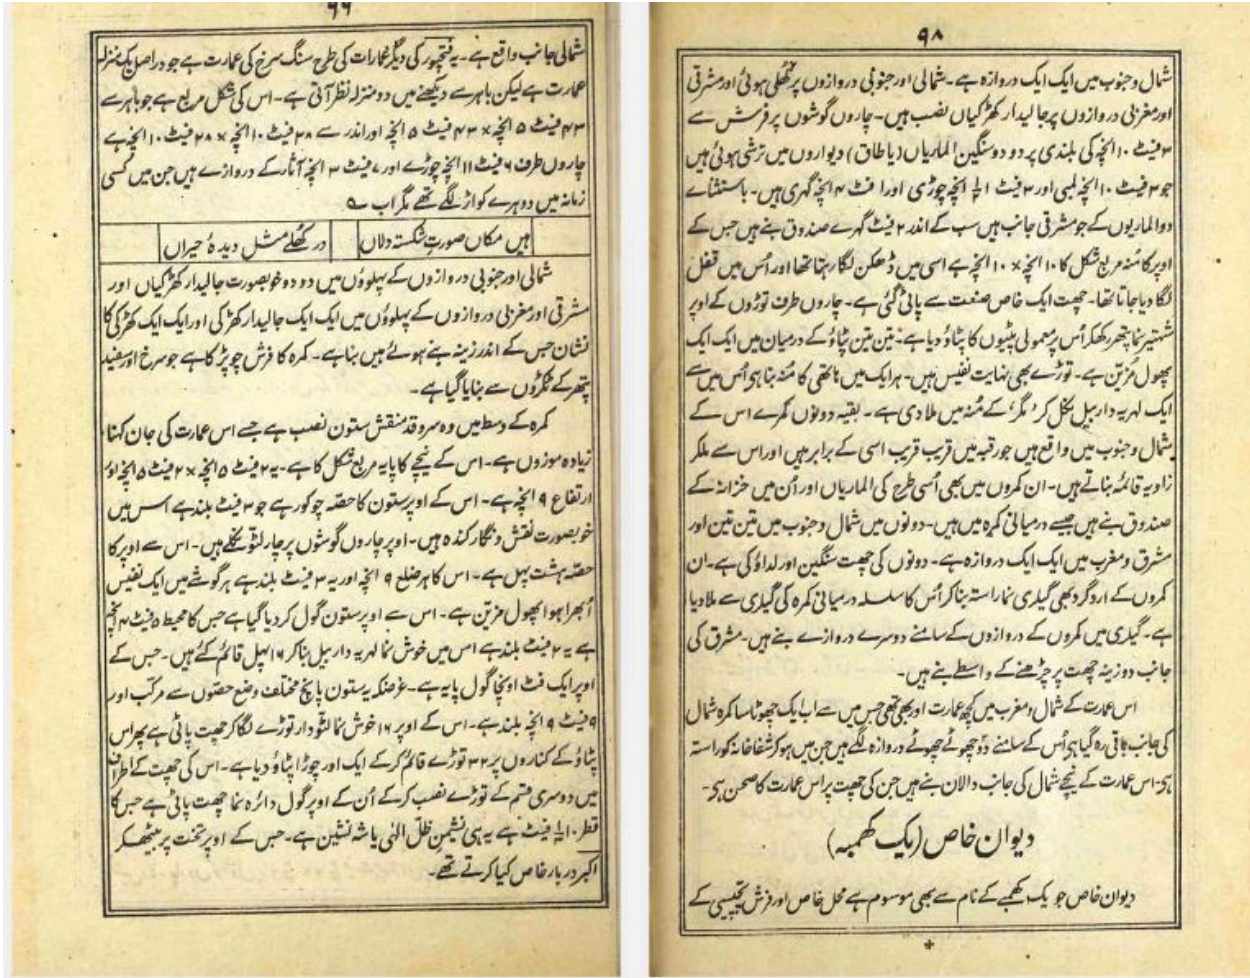 ۹۸
شمال و جنوب میں ایک ایک دروازہ ہے۔ شمالی اور جنوبی دروازوں پر کُھلی ہوئی اور مشرقی
اور مغربی دروازوں پر جالیدار کھڑکیاں نصب ہیں۔ چاروں گوشوں پر فرش سے
۳ فیٹ ۱۰ انچہ کی بلندی پر دو دو سنگین الماریاں (یا طاق) دیواروں میں ترشی ہوئی ہیں
جو ۳ فیٹ ۱۰ انچہ لمبی اور ۲ فیٹ ۱½ انچہ چوڑی اور ۱ فٹ ۴ انچہ گہری ہیں۔ باستثناے
دو الماریوں کے جو مشرقی جانب ہیں سب کے اندر ۲ فیٹ گہرے صندوق بنے ہیں جس کے
اوپر کا مُنہ مربع شکل کا ۱۰ انچہ × ۱۰ انچہ ہے اسی میں ڈھکن لگا رہتا تھا اور اُس میں قفل
لگا دیا جاتا تھا۔ چھت ایک خاص صنعت سے پاٹی گئی ہے۔ چاروں طرف توڑوں کے اوپر
شہتیر نما پتھر رکھکر اُس پر معمولی پٹیوں کا پٹاؤ دیا ہے۔ تین تین پٹاؤ کے درمیان میں ایک ایک
پھول مُزیّن ہے۔ توڑے بھی نہایت نفیس ہیں۔ ہر ایک میں ہاتھی کا مُنہ بنا ہی اُس میں سے
ایک لہریہ دار بیل نکل کر 'مگر' کے مُنہ میں ملا دی ہے۔ بقیہ دونوں کمرے اس کے
شمال و جنوب میں واقع ہیں جو رقبہ میں قریب قریب اسی کے برابر ہیں اور اس سے ملکر
زاویہ قائمہ بناتے ہیں۔ ان کمروں میں بھی اُسی طرح کی الماریاں اور اُن میں خزانہ کے
صندوق بنے ہیں جیسے درمیانی کمرہ میں ہیں۔ دونوں میں شمال و جنوب میں تین تین اور
مشرق و مغرب میں ایک ایک دروازہ ہے۔ دونوں کی چھت سنگین اور لداؤ کی ہے۔ ان
کمروں کے اردگرد بھی گیلری نما راستہ بنا کر اُس کا سلسلہ درمیانی کمرہ کی گیلری سے ملا دیا
ہے۔ گیلری میں کمروں کے دروازوں کے سامنے دوسرے دروازے بنے ہیں۔ مشرق کی
جانب دو زینہ چھت پر چڑھنے کے واسطے بنے ہیں۔
اس عمارت کے شمال و مغرب میں کچھ عمارت اور بھی تھی جس میں سے اب ایک چھوٹا سا کمرہ شمال
کی جانب باقی رہ گیا ہی اُس کے سامنے دو چھوٹے چھوٹے دروازہ لگے ہیں جن میں ہو کر شفاخانہ کو راستہ
ہی۔ اس عمارت کے نیچے شمال کی جانب دالان بنے ہیں جن کی چھت پر اس عمارت کا صحن ہی۔
دیوان خاص (یک کھمبہ)
دیوان خاص جو یک کھمبے کے نام سے بھی موسوم ہے محل خاص اور فرش پچیسی کے
*
۹۹
شمالی جانب واقع ہے۔ یہ فتحپور کی دیگر عمارات کی طرح سنگ سرخ کی عمارت ہے جو دراصل یک منزلہ
عمارت ہے لیکن باہر سے دیکھنے میں دو منزلہ نظر آتی ہے۔ اس کی شکل مربع ہے جو باہر سے
۴۳ فیٹ ۵ انچہ × ۴۳ فیٹ ۵ انچہ اور اندر سے ۲۸ فیٹ ۱۰ انچہ × ۲۸ فیٹ ۱۰ انچہ ہے
چاروں طرف ۶ فیٹ ۱۱ انچہ چوڑے اور ۷ فیٹ ۳ انچہ آثار کے دروازے ہیں جن میں کسی
زمانہ میں دوہرے کواڑ لگے تھے مگر اب ؎
ہیں مکاں صورتِ شکستہ دلاں در کُھلے مثل دیدۂ حیراں
شمالی اور جنوبی دروازوں کے پہلوؤں میں دو دو خوبصورت جالیدار کھڑکیاں اور
مشرقی اور مغربی دروازوں کے پہلوؤں میں ایک ایک جالیدار کھڑکی اور ایک ایک کھڑکی کا
نشان جس کے اندر زینہ بنے ہوئے ہیں بنا ہے۔ کمرہ کا فرش چوپڑ کا ہے جو سرخ اور سفید
پتھر کے ٹکڑوں سے بنایا گیا ہے۔
کمرہ کے وسط میں وہ سرو قد منقش ستون نصب ہے جسے اس عمارت کی جان کہنا
زیادہ موزوں ہے۔ اس کے نیچے کا پایہ مربع شکل کا ہے۔ یہ ۲ فیٹ ۵ انچہ × ۲ فیٹ ۵ انچہ اور
ارتفاع ۹ انچہ ہے۔ اس کے اوپر ستون کا حصّہ چوکور ہے جو ۳ فیٹ بلند ہے اس میں
خوبصورت نقش و نگار کندہ ہیں۔ اوپر چاروں گوشوں پر چار لٹو نکلے ہیں۔ اس سے اوپر کا
حصّہ ہشت پہل ہے۔ اس کا ہر ضلع ۹ انچہ اور یہ ۳ فیٹ بلند ہے ہر گوشے میں ایک نفیس
اُبھرا ہوا پھول مزیّن ہے۔ اس سے اوپر ستون گول کر دیا گیا ہے جس کا محیط ۵ فیٹ ۴ انچہ
ہے یہ ۲ فیٹ بلند ہے اس میں خوش نما لہریہ دار بیل بنا کر ۱۶ پہل قائم کئے ہیں۔ جس کے
اوپر ایک فٹ اونچا گول پایہ ہے۔ غرضکہ یہ ستون پانچ مختلف وضع حصّوں سے مرکّب اور
۹ فیٹ ۹ انچہ بلند ہے۔ اس کے اوپر ۱۶ خوش نما لٹّو دار توڑے لگا کر چھت پاٹی ہے پھر اس
پٹاؤ کے کناروں پر ۳۲ توڑے قائم کر کے ایک اور چوڑا پٹاؤ دیا ہے۔ اس کی چھت کے اطراف
میں دوسری قسم کے توڑے نصب کر کے اُن کے اوپر گول دائرہ نما چھت پاٹی ہے جس کا
قطر ۱۰½ فیٹ ہے یہ ہی نشیمن ظلّ الٰہی یا شہ نشین ہے۔ جس کے اوپر تخت پر بیٹھکر
اکبر دربار خاص کیا کرتے تھے۔